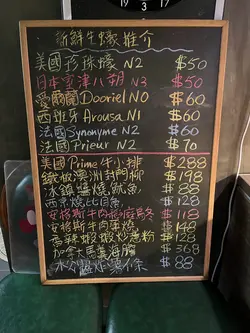 新鮮生蠔推介
美國珍珠蠔 N2 $50
日本 N3 $50
愛爾蘭Dooriel N0 $60
西班牙Arousa N1 $60
法國Synonyme N2 $60
法國Prieur N2 $70
美國Prime牛小排 $288
澳洲封門柳 $198
冰鎮 魷魚 $88
西京燒比目魚 $128
安格斯牛肉 $118
安格斯牛肉 $148
香辣蝦 炒 粉 $128
加拿大 $368
薯條 $88